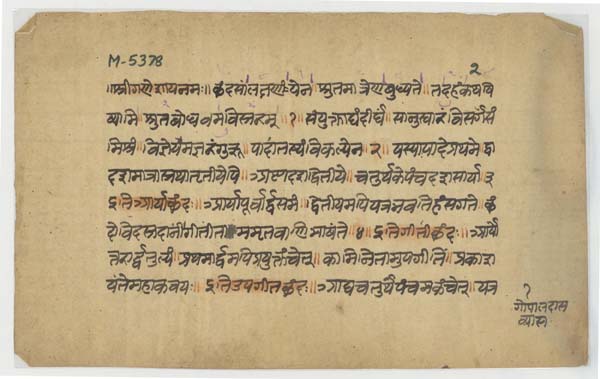 M-5378
2
॥श्रीगणेशायनमः॥ छंदसांलक्षणंयेन श्रुतमात्रेणबुध्यते॥ तदहंकथयि
ष्यामि श्रुतबोधमविस्तरम् १ संयुक्ताद्यंदीर्घं सानुस्वारं विसर्गसं
मिश्रं विज्ञेयमक्षरंगुरु॥ पादांतस्थंविकल्पेन २ यस्यापादेप्रथमे द्वा
दशमात्रास्तथातृतीयेपि॥ अष्टादशद्वितीये॥ चतुर्थकेपंचदशसार्या ३
इतिआर्याछंदः॥ आर्यापूर्वार्द्धसमं॥ द्वितीयमपियत्रभवतिहंसगते॥ छं
दोविदस्तदानींगीतींता ममृतवाणिभाषंते ४॥ इतिगीतीछंदः॥ आर्यो
त्तरार्द्धतुल्यं॥ प्रथमार्द्धमपिप्रयुक्तंचेत्॥ कामिनितामुपगीतिं॥ प्रकाश
यंतेमहाकवयः॥ इतिउपगीतछंदः॥ आद्यचतुर्थंपंचमकंचेत्॥ यत्र
१
गोपालदास
व्यास